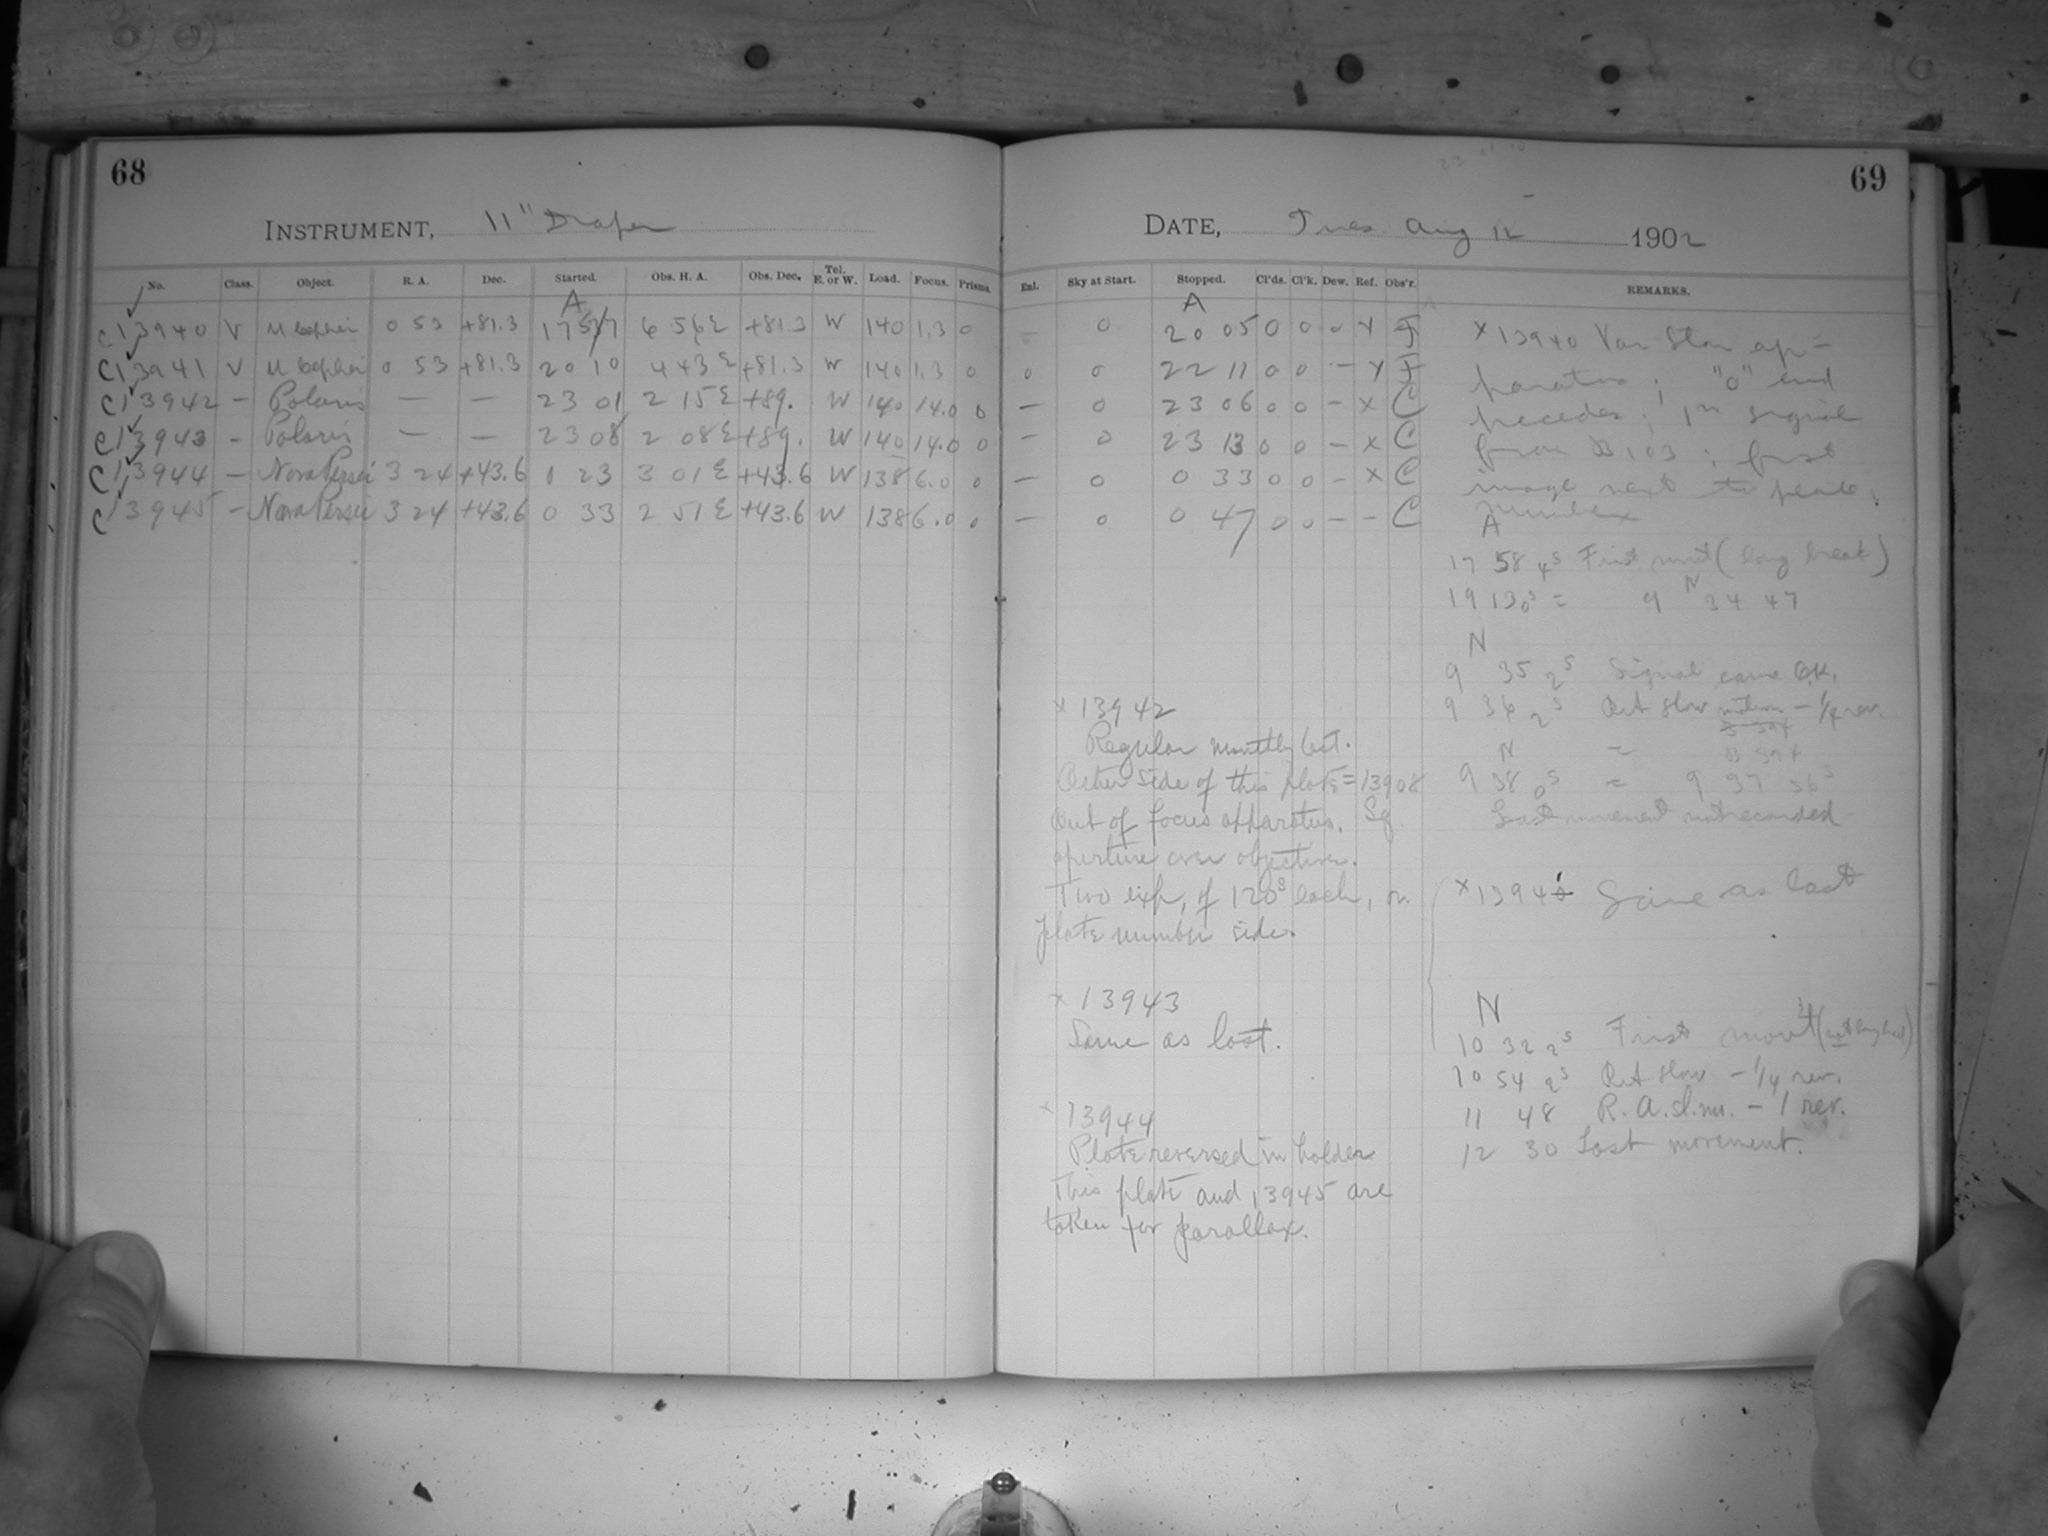 68
INSTRUMENT, 11" Draper
No. Class. Object. R. A. Dec. Started. Obs. H. A. Obs. Dec. Tel. E. or W. Load. Focus. Prisms.
A
C13940 V U Cephei 0 53 +81.3 17 57 6 56 E +81.3 W 140 1.3 0
C13941 V U Cephei 0 53 +81.3 20 10 4 43 E +81.3 W 140 1.3 0
C13942 - Polaris — — 23 01 2 15 E +89. W 140 14.0 0
C13943 - Polaris — — 23 08 2 08 E +89. W 140 14.0 0
C13944 - Nova Persei 3 24 +43.6 0 23 3 01 E +43.6 W 138 6.0 0
C13945 - Nova Persei 3 24 +43.6 0 33 2 51 E +43.6 W 138 6.0 0
69
DATE, Tues Aug 12 1902
Enl. Sky at Start. Stopped. Cl'ds. Cl'k. Dew. Ref. Obs'r. REMARKS.
A
— 0 20 05 0 0 - x F
0 0 22 11 0 0 - x F
— 0 23 06 0 0 - x C
— 0 23 13 0 0 - x C
— 0 0 33 0 0 - x C
— 0 0 47 0 0 - - C
x 13942
Regular monthly test.
Other side of this plate = 13908
Out of focus apparatus. Sq
aperture over objective.
Two exp, of 120s each, on
plate number side.
x 13943
Same as last.
x 13944
Plate reversed in holder
This plate and 13945 are
taken for parallax.
x 13940 Var Star ap-
paratus; "0" end
precedes; 1st signal
from ; first
image next to plate
number
A
17 58 4s First mvt (long break)
19 13 0s = 9 N 34 47
N
9 35 2s Signal came O.K.
9 36 2s Oct slow - 1/4 rev.
N =
9 38 0s = 9 37 56s
Last movement not recorded
x 13941 Same as last
N
10 32 2s First movt
10 54 2s Oct slow - 1/4 rev.
11 48 R.A. sl. m. - 1 rev.
12 30 Last movement.